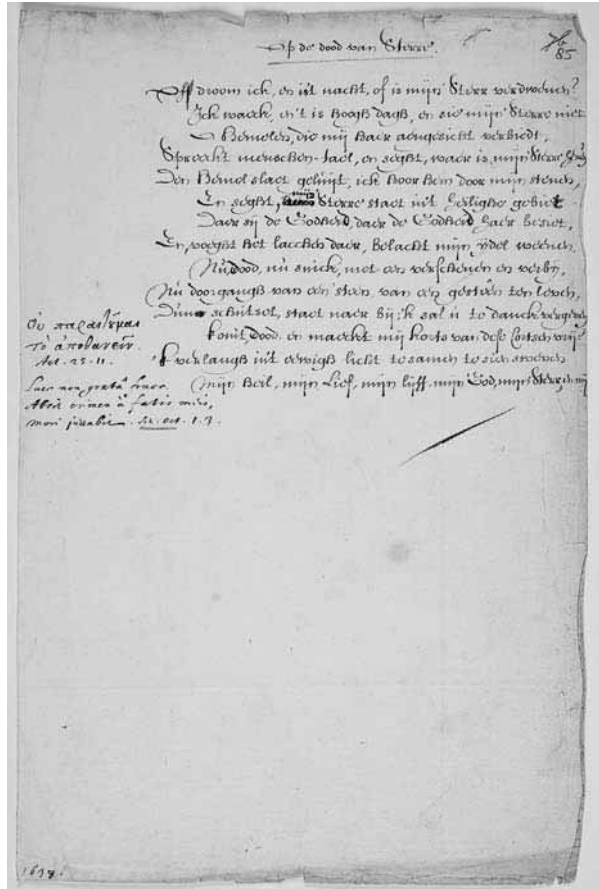 Op de dood van Sterre.
85
Off droom ick, en is't nacht, of is mijn' Sterr verdwenen?
Ick waeck, en 't is hoogh dagh, en sie mijn' Sterre niet
O Hemelen, die mij haer aengesicht verbiedt,
Spreeckt menschen-tael, en seght, waer is mijn Sterre
Den Hemel slaet geluijt, ick hoor hem door mijn stenen,
En seght, mijn' Sterre staet in't heilighe gebiet
Daer sij de Godheid, daer de Godheid haer besiet,
En, voeght het lacchen daer, belacht mijn ijdel weenen.
Nu, dood, nu snick, met een verschenen en verbij,
Nu doorgangh van een' steen, van een gesteen ten leven,
Dunn schutsel, staet naer bij; 'k sal u te danck vergeven
Komt, dood, en maeckt mij korts van dese Cortsen vrij:
'k verlangh in't eewigh licht te samen te sien sweven
Mijn Heil, mijn Lief, mijn lijff, mijn God, mijn Sterr, en mij
Οὐ παραιτῆμαι
τὸ ἀποθανεῖν.
Act. 25.11.
Luce non gratâ fruor.
Absit crimen à fatis meis,
mori juvabit. Sen. Oct. 1.3.